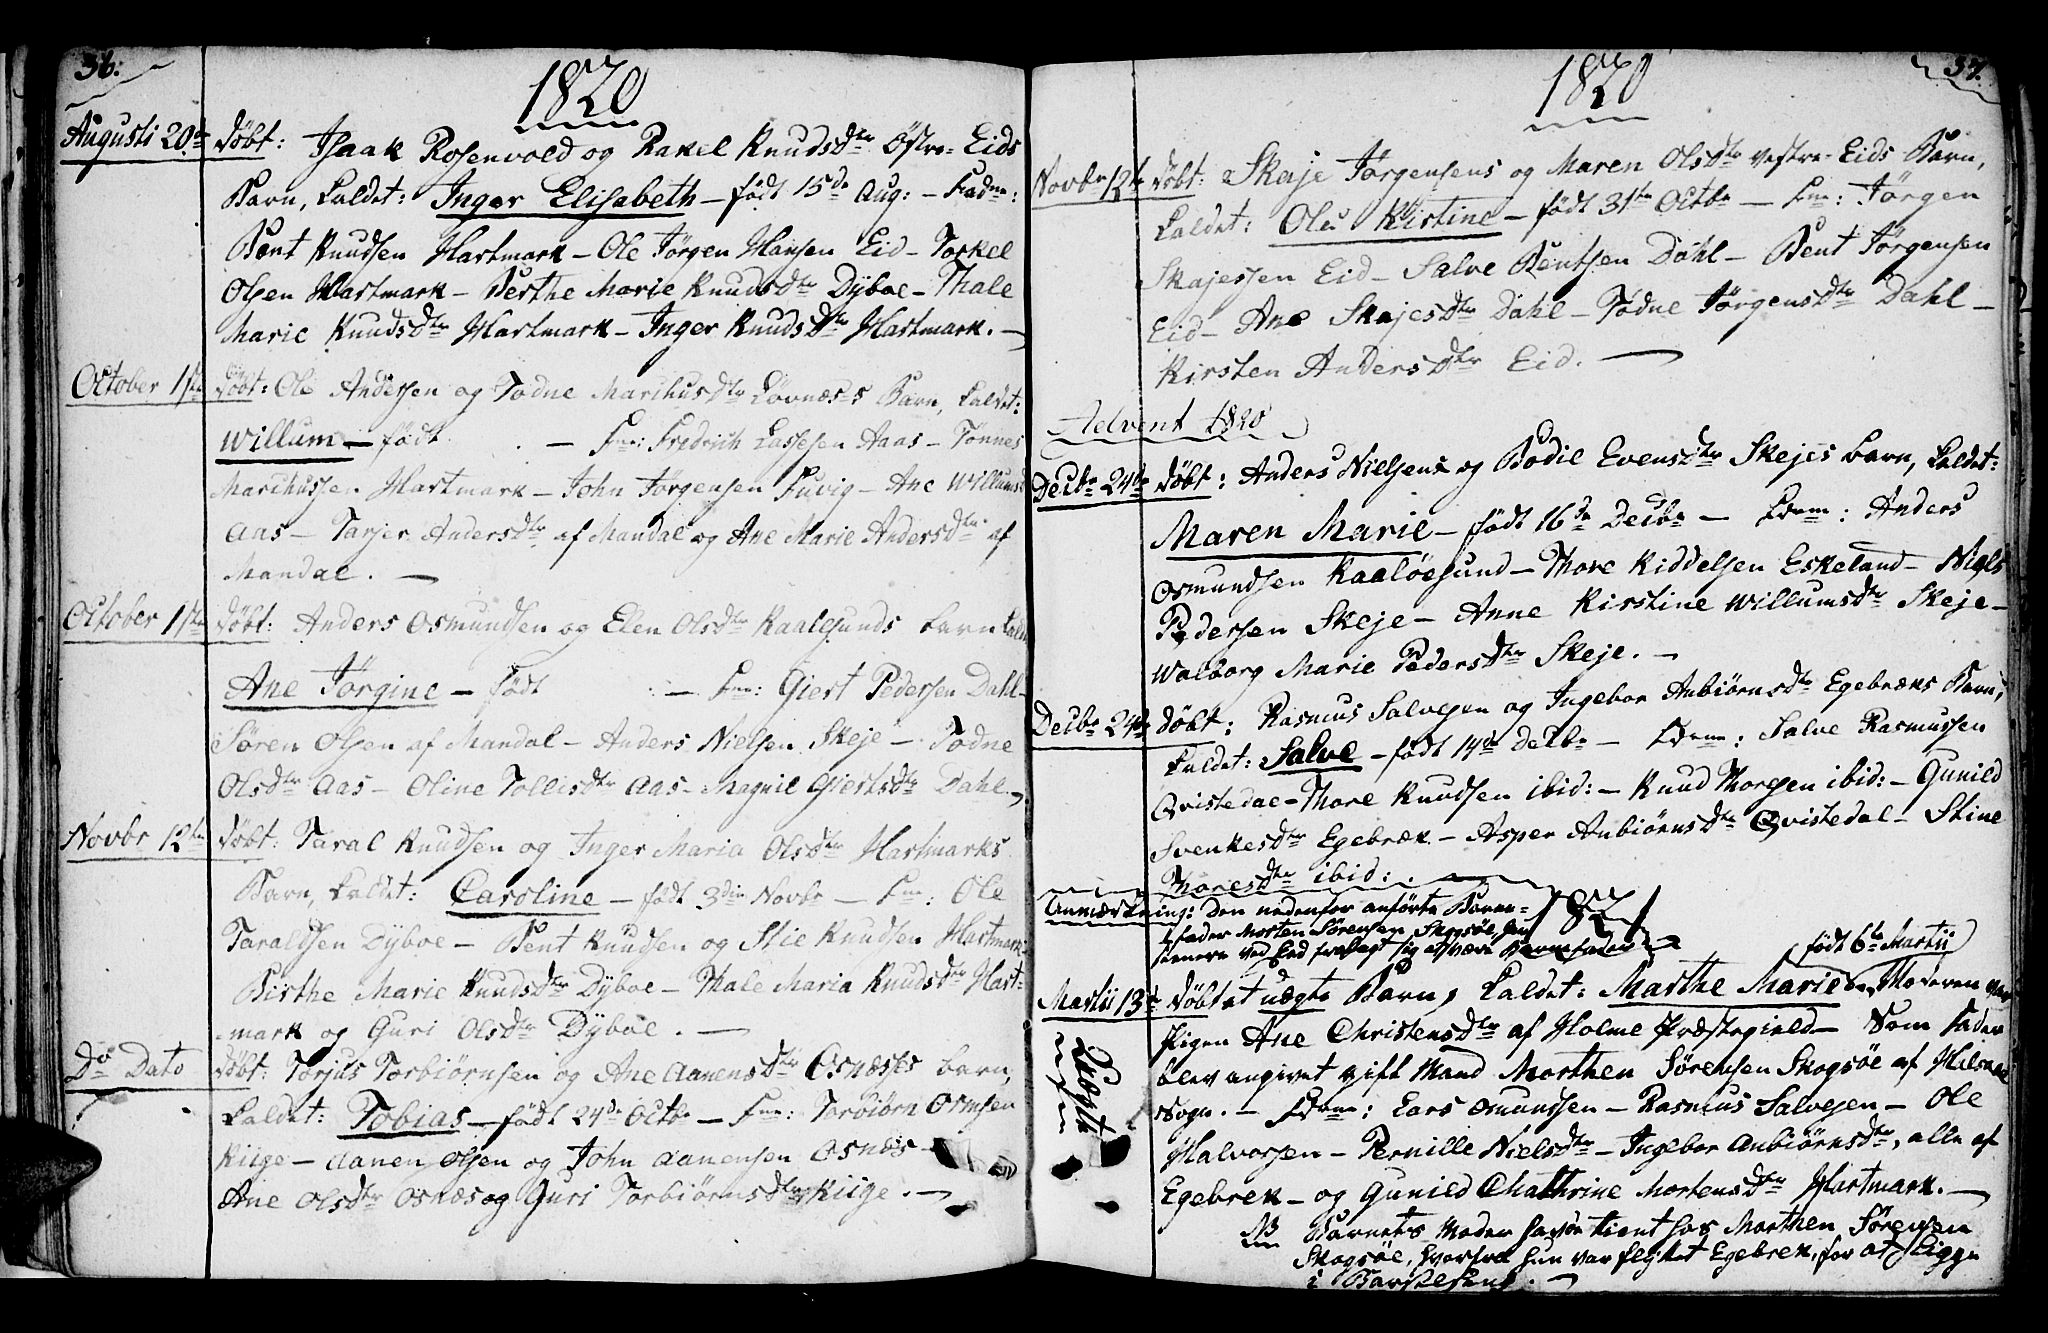 36.
1820
Augusti 20de Döbt: Isaak Rosenvold og Rakel Knudsdtr Östre-Eids
Barn, kaldet: Inger Elisabeth – födt 15de Aug: – Fadne:
Bent Knudsen Hartmark – Ole Jörgen Hansen Eid – Torkel
Olsen Hartmark – Berthe Marie Knudsdtr Dyboe – Thale
Marie Knudsdtr Hartmark – Inger Knudsdtr Hartmark. –
October 1ste Döbt: Ole Andersen og Todne Marihusdtr Lövnæs's Barn, kaldet:
Willum – födt . – Fne: Fredrich Lassesen Aas – Tönnes
Marihussen Hartmark – John Jörgensen Fuvig – Ane Willumsd
Aas – Tarjer Andersdtr af Mandal og Ane Marie Andersdtr af
Mandal. –
October 1ste Döbt: Anders Osmundsen og Elen Olsdtr Kaalesunds barn kaldet
Ane Jörgine – födt : – Fne: Giert Pedersen Dahl –
Sören Olsen af Mandal – Anders Nielsen Skeje – Todne
Olsdtr Aas – Oline Tollisdtr Aas – Magnil Giertsdtr Dahl. –
Novbr 12te Döbt: Taral Knudsen og Inger Maria Olsdtr Hartmarks
Barn, kaldet: Caroline – födt 3die Novbr – Fne: Ole
Taraldsen Dyboe – Bent Knudsen og Stie Knudsen Hartmark
Birthe Marie Knudsdtr Dyboe – Thale Maria Knudsdtr Hart-
mark og Guri Olsdtr Dyboe. –
Do Dato Döbt: Torjus Torbiörnsen og Ane Aanensdtr Osnæs's barn,
kaldet: Tobias – födt 24de Octbr – Fne: Torbiörn Ormsen
Kiige – Aanen Olsen og John Aanensen Osnæs –
Ane Olsdtr Osnæs og Guri Torbiörnsdtr Kiige. –
37.
1820
Novbr 12te Döbt: Skaje Jörgensens og Maren Olsdtr Vestre-Eids Barn,
kaldet: Ole Kistine – födt 31te Octbr – Fne: Jörgen
Skajessen Eid – Salve Bentsen Dahl – Bent Jörgensen
Eid – Ane Skajesdtr Dahl – Todne Jörgensdtr Dahl –
Kirsten Andersdtr Eid. –
Advent 1820
Decbr 24de Döbt: Anders Nielsens og Bodil Evensdtr Skejes barn, kaldet:
Maren Marie – födt 16de Decbr – Fdrne: Anders
Osmundsen Kaalöesund – Thore Kiddelsen Eskeland – Niels
Pedersen Skeje – Anne Kirstine Willumsdtr Skeje –
Walborg Marie Pedersdtr Skeje. –
Decbr 24de Döbt: Rasmus Salvesen og Ingebor Anbiörnsdtr Egebræks Barn,
kaldet: Salve – födt 14de Decbr – Fdrne: Salve Rasmussen
Qvistedal – Thore Knudsen ibid: – Knud Thorsen ibid: – Gunild
Svenkesdtr Egebræk – Asper Anbiörnsdtr Qvistedal – Stine
Thoresdtr ibid: .
Anmærkning: Den nedenfor anförte Barne-
fader Morten Sörensen Skogsöe, har
senere ved Eed fralagt sig at være Barnefader
1821
födt 6te Martii
Martii 13de Döbt et uægte Barn, kaldet: Marthe Marie – Moderen
Pigen Ane Christensdtr af Holme Præstegield – Som Fader
blev angivet gift Mand Morthen Sörensen Skogsöe af
Sogn. – Fdrne: Lars Osmundsen – Rasmus Salvesen – Ole
Halvorsen – Pernille Nielsdtr – Ingebor Anbiörnsdtr, alle af
Egebrek – og Gunild Chathrine Mortensdtr Hartmark. –
Uægte
NB Barnets Moder havde tient hos Morthen Sörensen
Skogsöe, hvorfra hun var flyttet Egebrek, for at ligge
i Barselseng. –